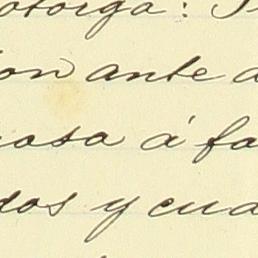 otorga:
on ante
osa á fa
dos y cua